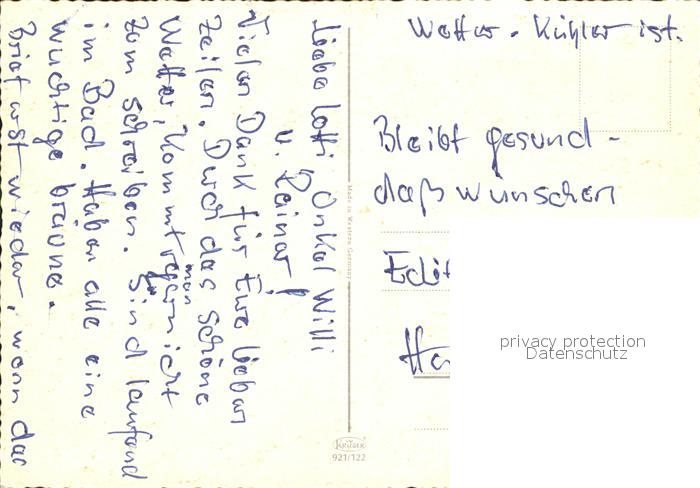 Liebe Lotti Onkel Willi
u. Reiner!
Vielen Dank für Eure lieben
Zeilen. Durch das schöne
Wetter, kommt man gar nicht
zum schreiben. Sind laufend
im Bad. Haben alle eine
wüchtige bräune.
Brief erst wieder, wenn das
Wetter. Kühler ist.
Bleibt gesund -
daß wünschen
Edit
Ha
Made in Western Germany
KRÜGER
921/122
privacy protection
Datenschutz